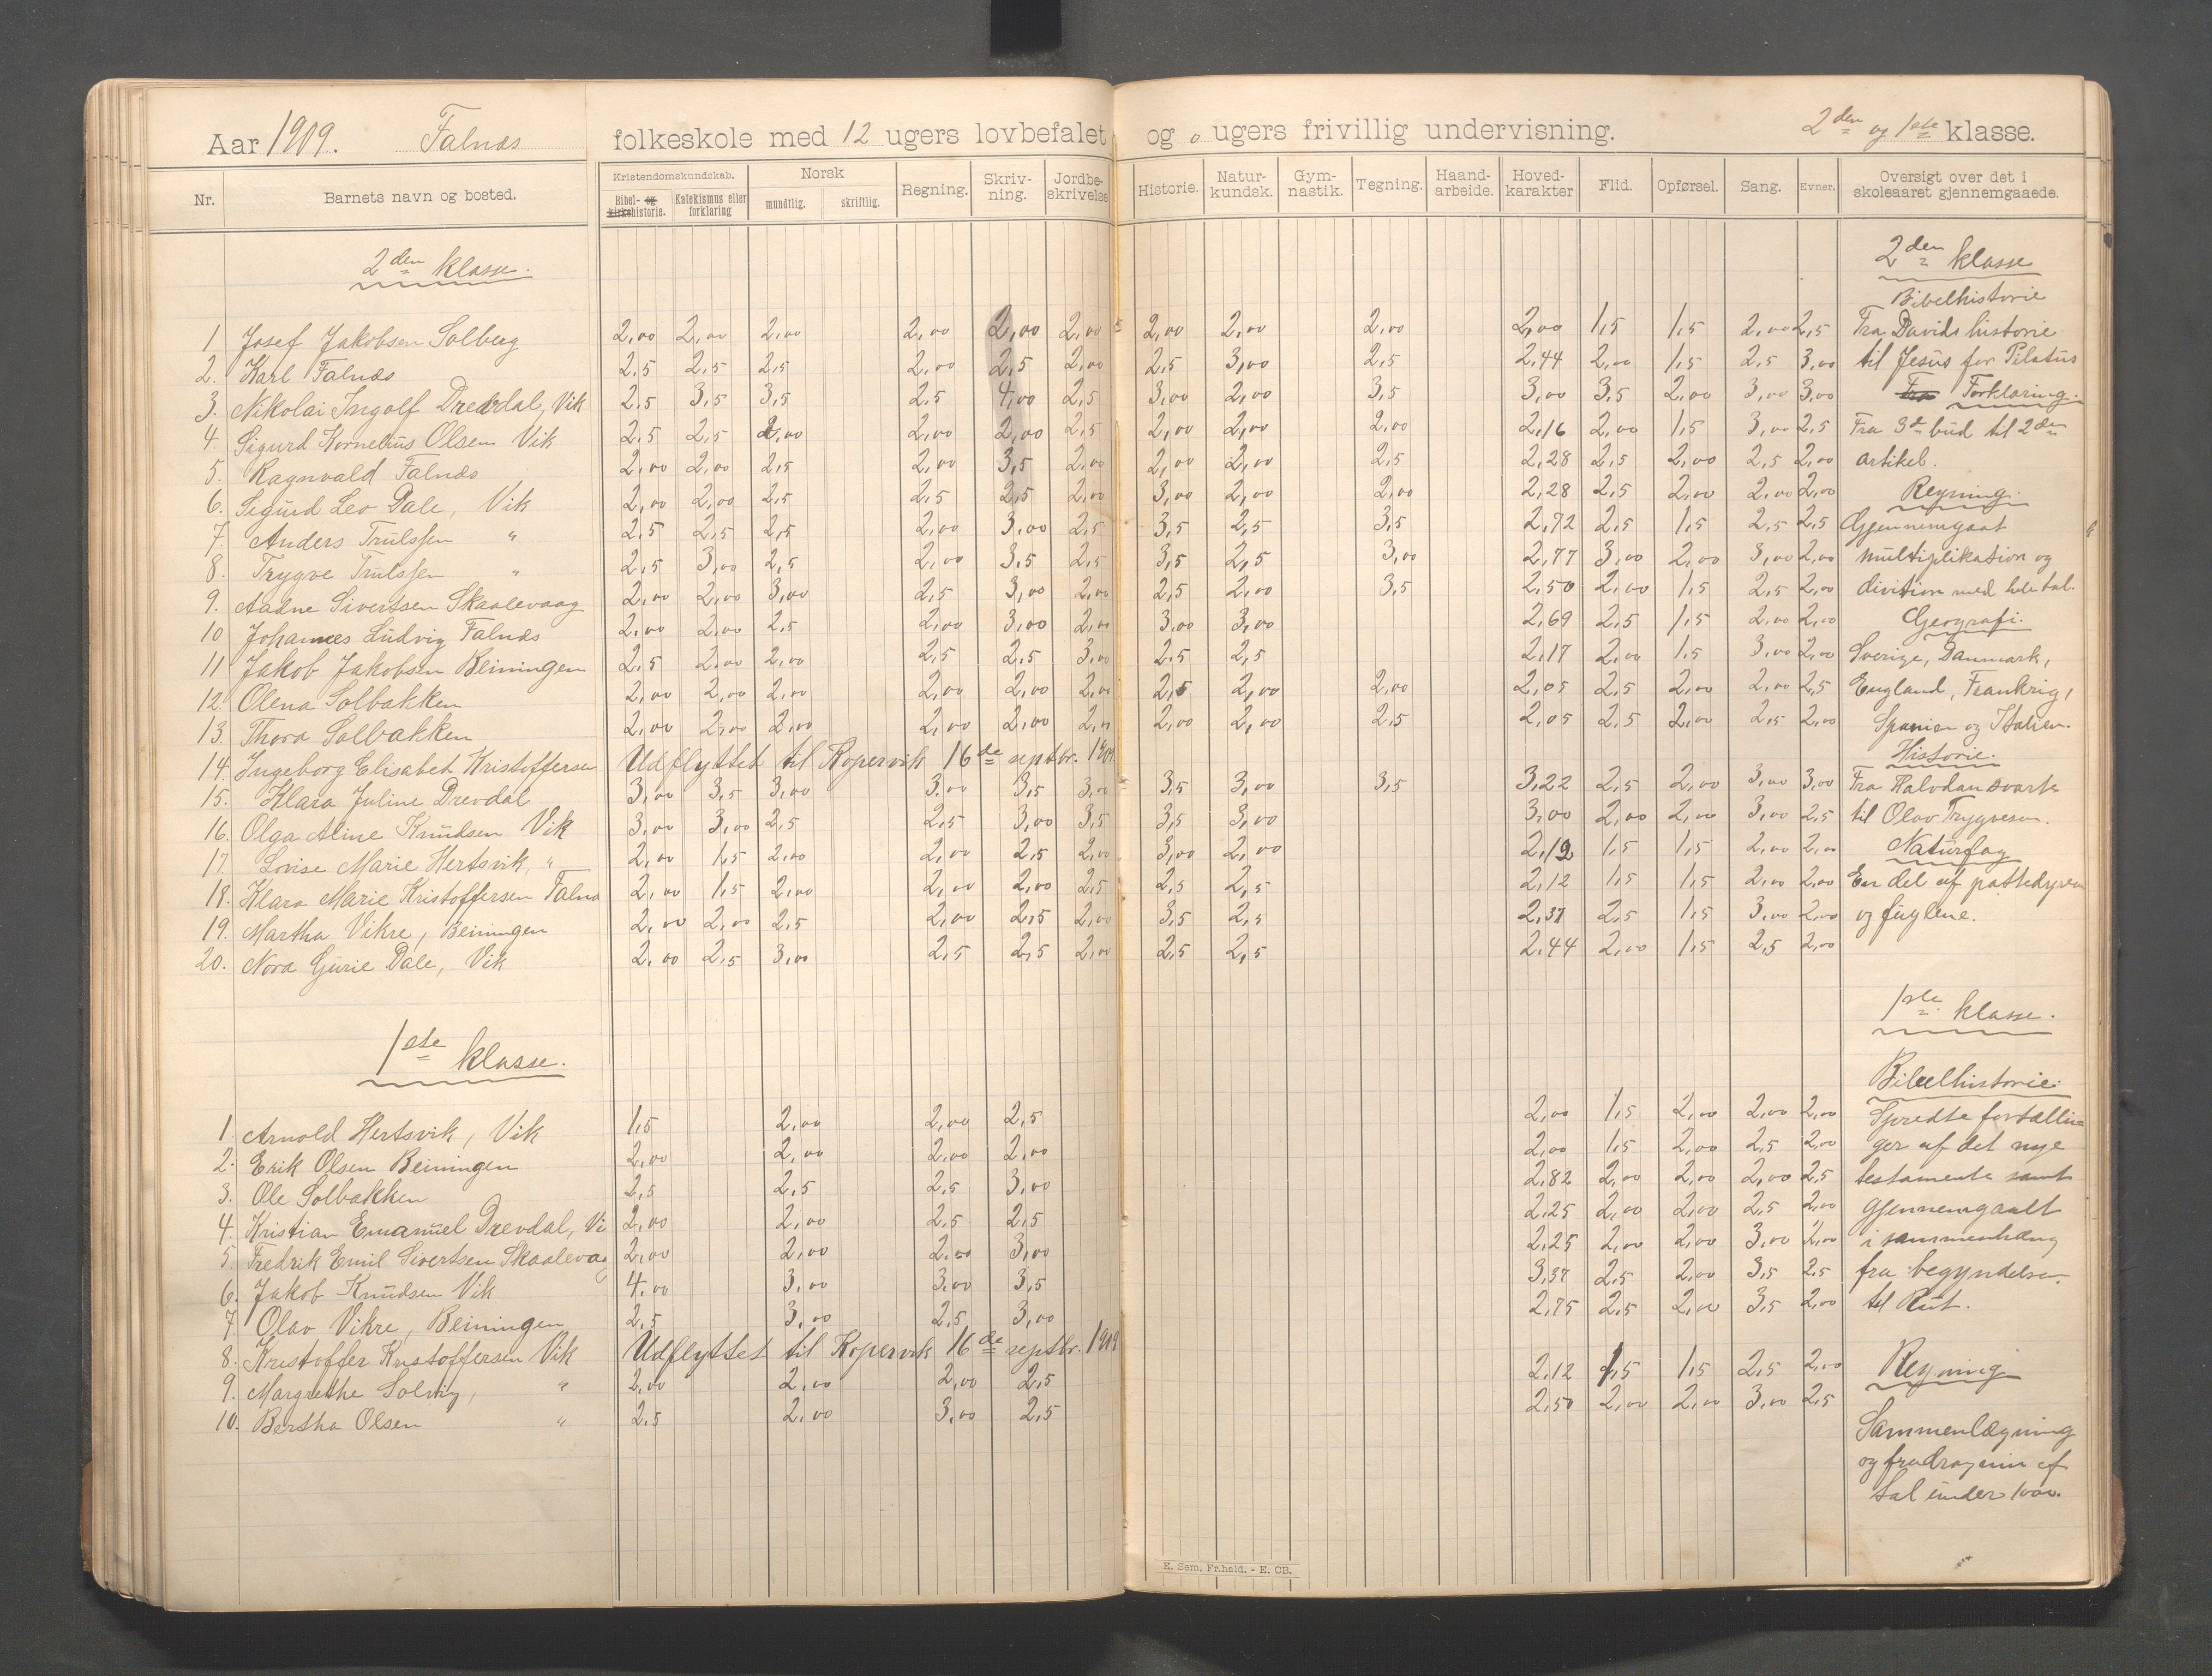 Aar 1909. Falnæs folkeskole med 12 ugers lovbefalet og 0 ugers frivillig undervisning. 2den og 1ste klasse.
Nr. Barnets navn og bosted. Kristendomskundskab. Bibel- og kirkehistorie. Katekismus eller forklaring Norsk mundtlig. skriftlig. Regning. Skriv-ning. Jordbe-skrivelse Historie. Natur-kundsk. Gym-nastik. Tegning. Haand-arbeide. Hoved-karakter Flid. Opførsel. Sang. Evner. Oversigt over det i skoleaaret gjennemgaaede.
2den klasse.
1 Josef Jakobsen Solberg 2,00 2,00 2,00 2,00 2,00 2,00 2,00 2,00 2,00 2,00 1,5 1,5 2,00 2,5
2. Karl Falnæs 2,5 2,5 2,5 2,00 2,5 2,00 2,5 3,00 2,5 2,44 2,00 1,5 2,5 3,00
3. Nikolai Ingolf Drevdal, Vik 2,5 3,5 3,5 2,5 4,00 2,5 3,00 2,00 3,5 3,00 3,5 2,00 3,00 3,00
4. Sigurd Kornelius Olsen Vik 2,5 2,5 2,00 2,00 2,00 2,5 2,00 2,00 2,00 2,16 2,00 1,5 3,00 2,5
5. Ragnvald Falnæs 2,00 2,00 2,5 2,00 3,5 2,00 2,00 2,00 2,5 2,28 2,5 2,00 2,5 2,00
6. Sigurd Leo Dale, Vik 2,00 2,00 2,5 2,5 2,5 2,00 3,00 2,00 2,00 2,28 2,5 2,00 2,00 2,00
7. Anders Trulssen " 2,5 2,5 2,5 2,00 3,00 2,5 3,5 2,5 3,5 2,72 2,5 1,5 2,5 2,5
8. Trygve Trulssen " 2,5 3,00 2,5 2,00 3,5 2,5 3,5 2,5 3,00 2,77 3,00 2,00 3,00 2,00
9. Aadne Sivertsen Skaalevaag 2,00 2,00 3,00 2,5 3,00 2,00 2,5 2,00 3,5 2,50 2,00 1,5 2,5 2,00
10 Johannes Ludvig Falnæs 2,00 2,00 2,5 2,00 3,00 2,00 3,00 3,00 2,69 2,5 1,5 2,00 2,00
11 Jakob Jakobsen Beiningen 2,5 2,00 2,00 2,5 2,5 3,00 2,5 2,5 2,17 2,00 1,5 3,00 2,00
12. Olena Solbakken 2,00 2,00 2,00 2,00 2,00 2,00 2,5 2,00 2,00 2,05 2,5 2,00 2,00 2,5
13. Thora Solbakken 2,00 2,00 2,00 2,00 2,00 2,00 2,00 2,00 2,5 2,05 2,5 2,00 2,5 2,00
14. Ingeborg Elisabet Kristoffersen Udflyttet til Kopervik 16de septbr. 1909
15. Klara Juline Drevdal 3,00 3,5 3,00 3,00 3,5 3,00 3,5 3,00 3,5 3,22 2,5 2,00 3,00 3,00
16. Olga Aline Knudsen Vik 3,00 3,00 2,5 2,5 3,00 3,5 3,5 3,00 3,00 2,00 2,00 3,00 2,5
17. Lovise Marie Hertsvik, " 2,00 1,5 2,00 2,00 2,5 2,00 3,00 2,00 2,12 1,5 1,5 2,00 2,00
18. Klara Marie Kristoffersen Falnæ 2,00 1,5 2,00 2,00 2,00 2,5 2,5 2,5 2,12 1,5 1,5 2,00 2,00
19. Martha Vikre, Beiningen 2,00 2,00 2,5 2,00 2,5 2,00 3,5 2,5 2,37 2,5 1,5 3,00 2,00
20. Nora Gurie Dale, Vik 2,00 2,5 3,00 2,5 2,5 2,00 2,5 2,5 2,44 2,00 1,5 2,5 2,00
1ste klasse.
1. Arnold Hertsvik, Vik 1,5 2,00 2,00 2,5 2,00 1,5 2,00 2,00 2,00
2. Erik Olsen Beiningen 2,00 2,00 2,00 2,00 2,00 1,5 2,00 2,5 2,00
3. Ole Solbakken 2,5 2,5 2,5 3,00 2,82 2,00 2,00 2,00 2,5
4. Kristian Emanuel Drevdal, Vi 2,00 2,00 2,5 2,5 2,25 2,00 2,00 2,5 2,00
5. Fredrik Emil Sivertsen Skaalevaag 2,00 2,00 2,00 3,00 2,25 2,00 2,00 3,00 2,00
6. Jakob Knudsen Vik 4,00 3,00 3,00 3,5 3,37 2,5 2,00 3,5 2,5
7. Olav Vikre, Beiningen 2,5 3,00 2,5 3,00 2,75 2,5 2,00 3,5 2,00
8. Kristoffer Kristoffersen Vik Udflyttet til Kopervik 16de septbr. 1909
9. Margrethe Solvig, " 2,00 2,00 2,00 2,5 2,12 1,5 1,5 2,5 2,00
10. Bertha Olsen " 2,5 2,00 3,00 2,5 2,50 2,00 2,00 3,00 2,5
2den klasse
Bibelhistorie
Fra Davids historie
til Jesus for Pilatus
Fra Forklaring.
Fra 3de bud til 2den
artikel.
Regning.
Gjennemgaat
multiplikation og
division med hele tal.
Geografi.
Sverige, Danmark,
England, Frankrig,
Spanien og Italien.
Historie.
Fra Halvdan svarte
til Olav Trygveson.
Naturfag
En del af pattedyrene
og fuglene.
1ste klasse.
Bibelhistorie.
Spredte fortællin=
ger af det nye
testamente samt
gjennemgaalt
i sammenhæng
fra begyndelsen
til Rut.
Regning
Sammenlægning
og fradragning af
tal under 1000.
E. Sem, Fr.hald. - E. CB.